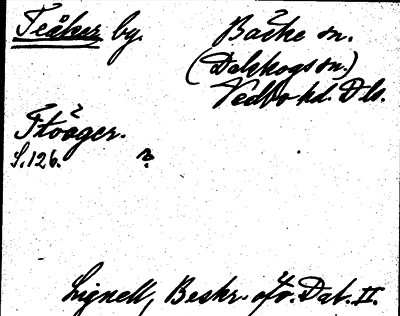 Teåker by. Bäcke sn.
(Dalskogs sn.)
Vedbo hd. Dls.
Ttååger.
S. 126. n.
Lignell, Beskr. öfv. Dal. II.